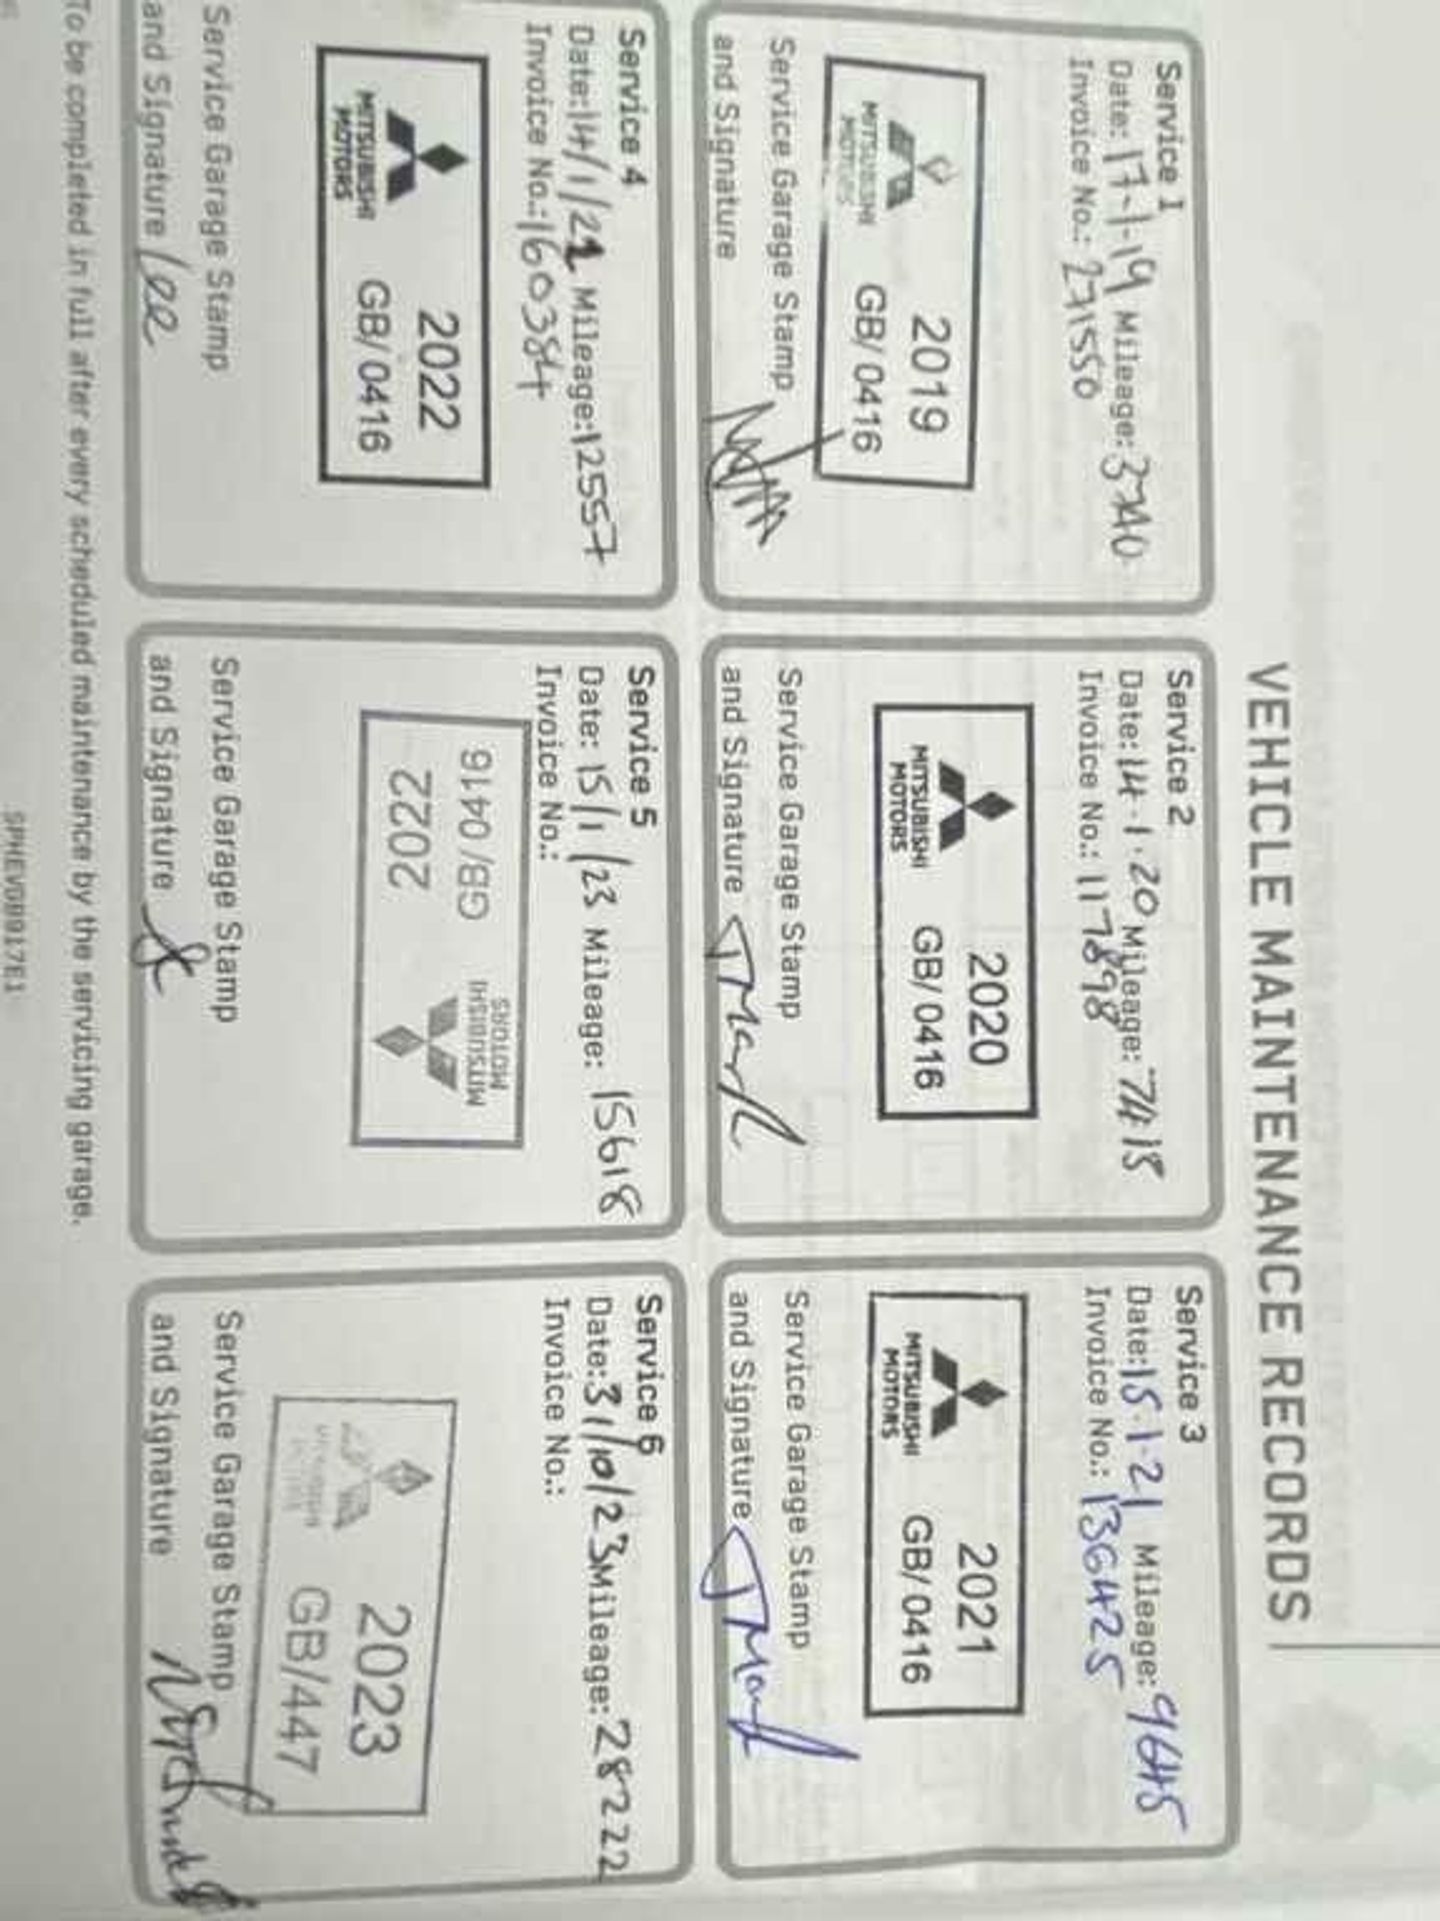 VEHICLE MAINTENANCE RECORDS
Service 1
Date: 17-1-19 Mileage: 3740
Invoice No.: 271550
MITSUBISHI
MOTORS
2019
GB/0416
Service Garage Stamp
and Signature
Service 2
Date: 14.1.20 Mileage: 7418
Invoice No.: 117898
MITSUBISHI
MOTORS
2020
GB/0416
Service Garage Stamp
and Signature
Service 3
Date: 15.1.21 Mileage: 9645
Invoice No.: 136425
MITSUBISHI
MOTORS
2021
GB/0416
Service Garage Stamp
and Signature
Service 4
Date: 14/1/22 Mileage: 12557
Invoice No.: 160384
MITSUBISHI
MOTORS
2022
GB/0416
Service Garage Stamp
and Signature Lee
Service 5
Date: 15/1/23 Mileage: 15618
Invoice No.:
MITSUBISHI
MOTORS
GB/0416
2022
Service Garage Stamp
and Signature
Service 6
Date: 31/10/23 Mileage: 28222
Invoice No.:
2023
GB/447
Service Garage Stamp
and Signature
To be completed in full after every scheduled maintenance by the servicing garage.